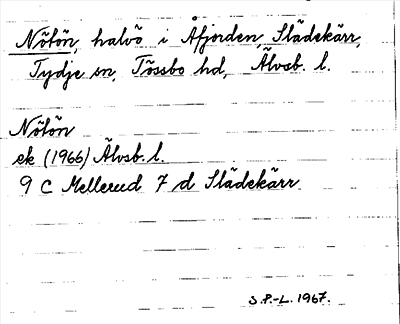 Nötön, halvö i Åfjorden, Slädekärr,
Tydje sn, Tössbo hd, Älvsb. l.
Nötön
ek (1966) Älvsb. l.
9 C Mellerud 7 d Slädekärr
S.P.-L. 1967.